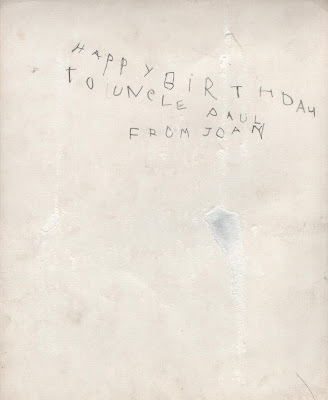 HAPPY BiRTHDAY
TO UNCLE PAUL
FROM JOAN